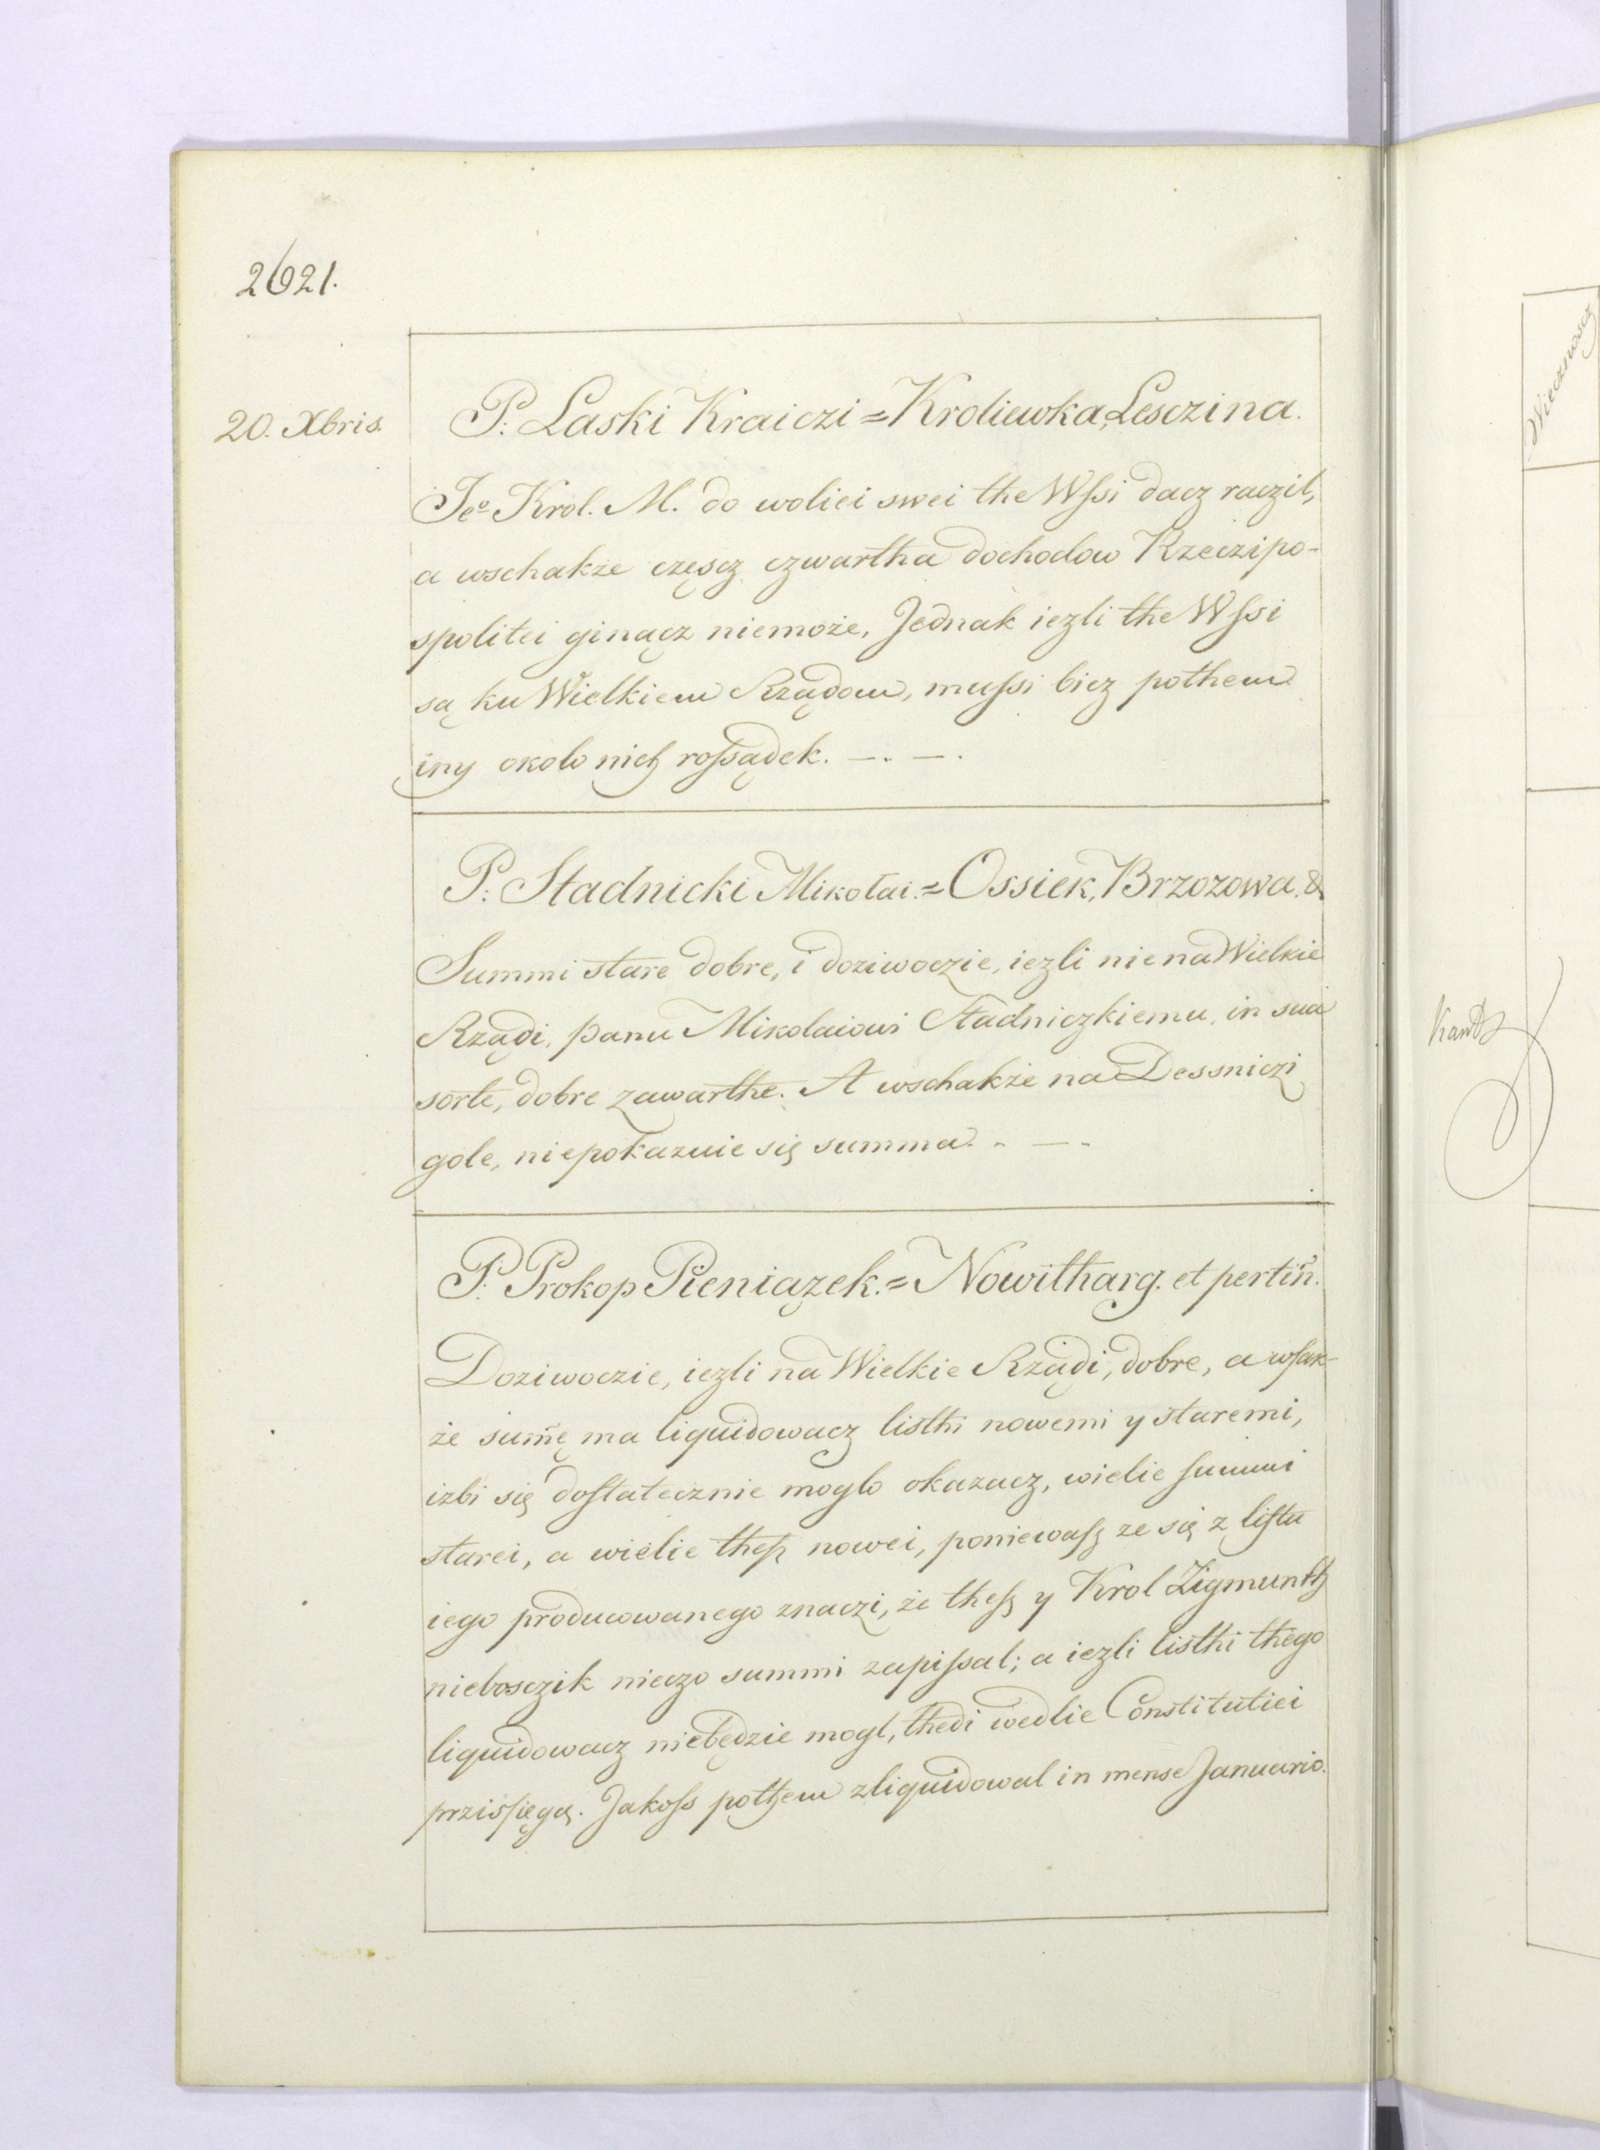 2621.
20. Xbris.
P: Laski Kraiczi = Kroliewka, Lesczina.
Jeo Krol. M. do woliei swei the Wſsi dacz raczil,
a wschakże częscz czwartha dochodow Rzeczipo-
spolitei ginącz niemoże, Jednak iezli the Wſsi
są ku Wielkiem Rządom, muſsi bicz pothem
iny okolo nich roſsądek. —. —.
P: Stadnicki Mikołai. = Ossiek, Brzozowa. &
Summi stare dobre, i doziwoczie, iezli nie na Wielkie
Rządi, panu Mikolaiowi Stadniczkiemu, in sua
sorte, dobre zawarthe. A wschakże na Dessniczi
gole, niepokazuie się summa. - — -
P. Prokop Pieniązek. = Nowitharg. et pertin̄.
Doziwoczie, iezli na Wielkie Rządi, dobre, a wſak-
że sum̄ę ma liquidowacz listhi nowemi y staremi,
izbi się doſtatecznie moglo okazacz, wielie ſummi
starei, a wielie theſz nowei, poniewaſz ze się z liſtu
iego producowanego znaczi, że theſz y Krol Zigmunth
nieboszczik nieczo summi zapiſsal; a iezli listhi thego
liquidowacz niebędzie mogl, thedi wedlie Constitutiei
przisſięgą. Jakoſs pothem zliquidowal in mense Januario.
Wiecznoscz